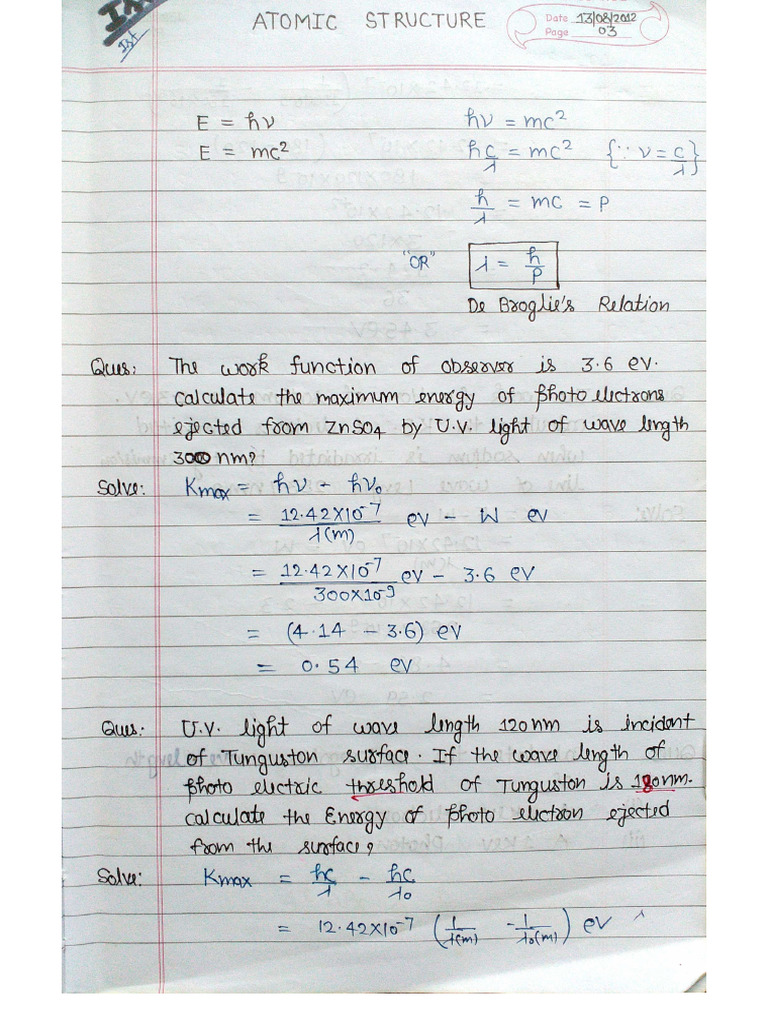 ATOMIC STRUCTURE
Date 13/08/2012
Page 03
Ist
E = hν
hν = mc²
E = mc²
hc/λ = mc² {∵ ν = c/λ}
h/λ = mc = P
"OR" λ = h/P
De Broglie's Relation
Ques: The work function of observer is 3.6 ev.
calculate the maximum energy of photo electrons
ejected from ZnSO4 by U.V. light of wave length
300 nm?
Solve: Kmax = hν - hν₀
= 12.42×10⁻⁷/λ(m) ev - W ev
= 12.42×10⁻⁷/300×10⁻⁹ ev - 3.6 ev
= (4.14 - 3.6) ev
= 0.54 ev
Ques: U.V. light of wave length 120nm is incident
of Tunguston surface. If the wave length of
photo electric threshold of Tunguston is 180nm.
calculate the Energy of photo electron ejected
from the surface?
Solve: Kmax = hc/λ - hc/λ₀
= 12.42×10⁻⁷ (1/λ(m) - 1/λ₀(m)) ev